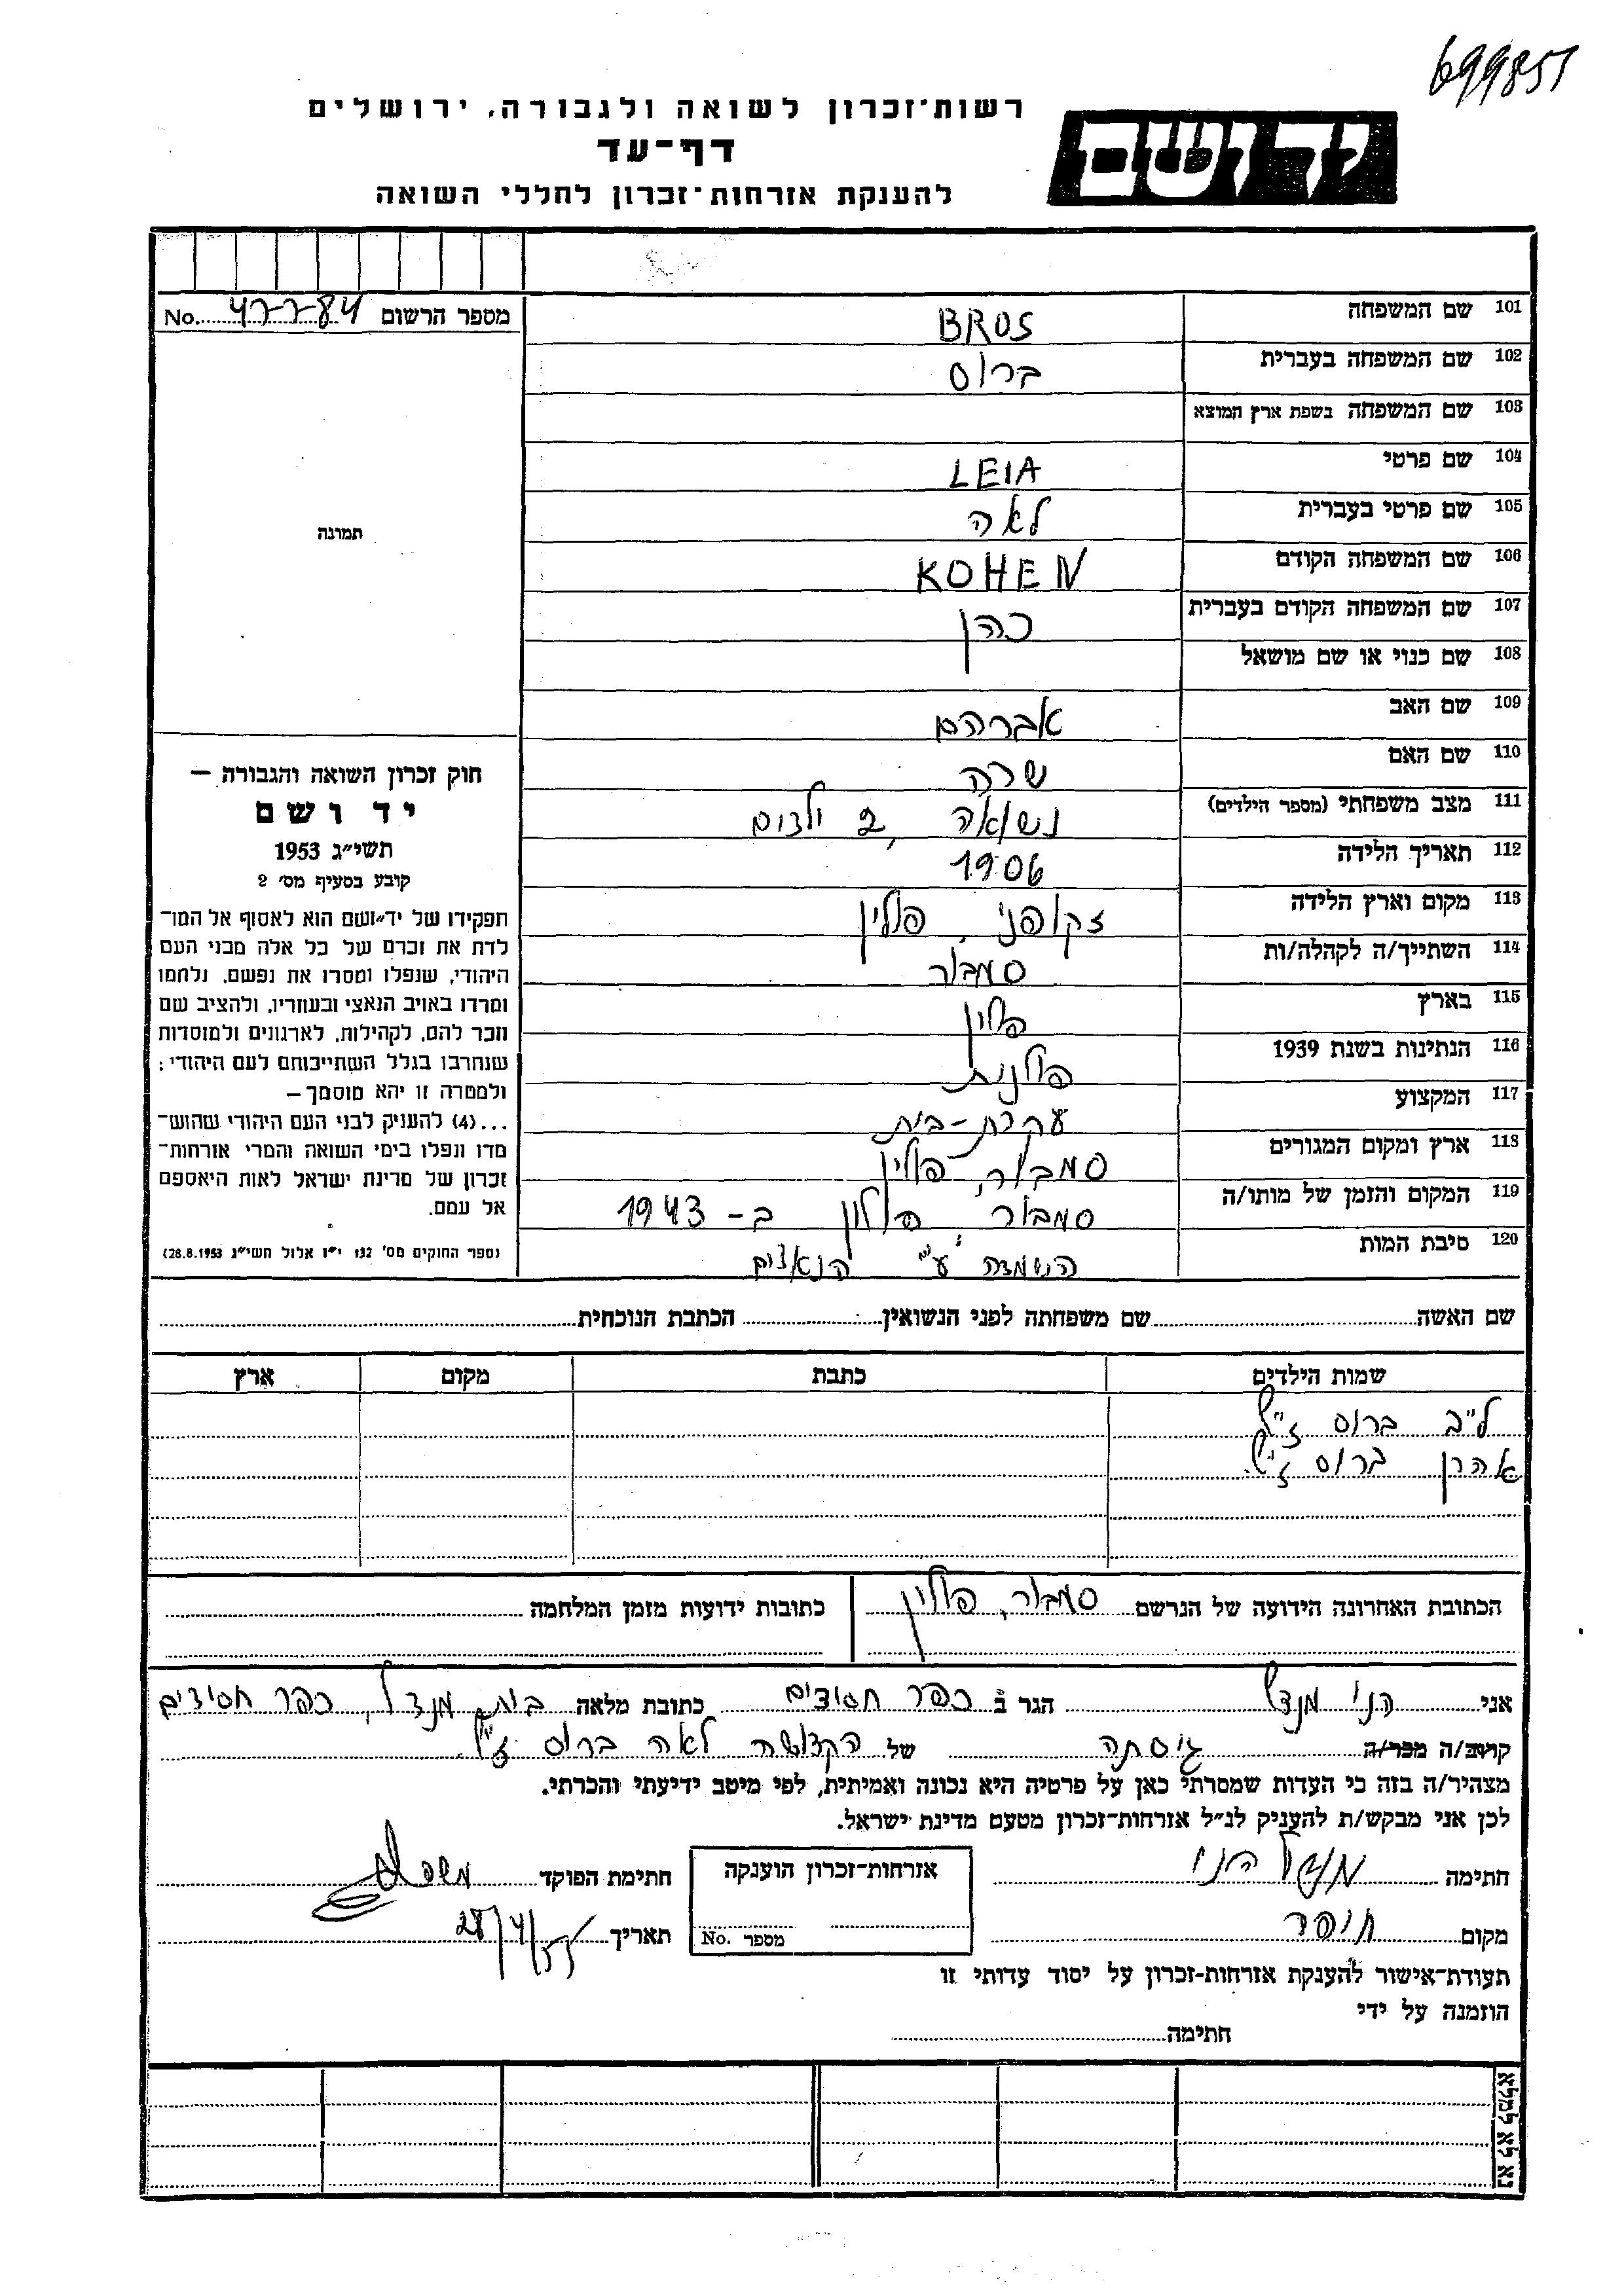 699851
רשות־זכרון לשואה ולגבורה, ירושלים
דף־עד
להענקת אזרחות־זכרון לחללי השואה
יד ושם
מספר הרשום No.
101 שם המשפחה BROS
102 שם המשפחה בעברית ברוס
103 שם המשפחה בשפת ארץ המוצא
104 שם פרטי LEIA
105 שם פרטי בעברית לאה
106 שם המשפחה הקודם KOHEN
107 שם המשפחה הקודם בעברית כהן
108 שם כנוי או שם מושאל
109 שם האב אברהם
110 שם האם שרה
111 מצב משפחתי (מספר הילדים) נשואה, 2 ילדים
112 תאריך הלידה 1906
113 מקום וארץ הלידה זקופני, פולין
114 השתייך/ה לקהלה/ות סמבור
115 בארץ פולין
116 הנתינות בשנת 1939 פולנית
117 המקצוע עקרת-בית
118 ארץ ומקום המגורים סמבור, פולין
119 המקום והזמן של מותו/ה סמבור, פולין ב- 1943
120 סיבת המות הושמדה ע"י הנאצים
תמונה
חוק זכרון השואה והגבורה —
יד ושם
תשי״ג 1953
קובע בסעיף מס׳ 2
תפקידו של יד־ושם הוא לאסוף אל המו־
לדת את זכרם של כל אלה מבני העם
היהודי, שנפלו ומסרו את נפשם, נלחמו
ומרדו באויב הנאצי ובעוזריו, ולהציב שם
וזכר להם, לקהילות, לארגונים ולמוסדות
שנחרבו בגלל השתייכותם לעם היהודי;
ולמטרה זו יהא מוסמך —
...(4) להעניק לבני העם היהודי שהוש־
מדו ונפלו בימי השואה והמרי אזרחות־
זכרון של מדינת ישראל לאות היאספם
אל עמם.
(ספר החוקים מס׳ 132 י״ז אלול תשי״ג 28.8.1953)
שם האשה שם משפחתה לפני הנשואין הכתבת הנוכחית
שמות הילדים כתבת מקום ארץ
ל"ב ברוס ז"ל
אהרן ברוס ז"ל
הכתובת האחרונה הידועה של הנרשם סמבור, פולין כתובות ידועות מזמן המלחמה
אני הני מנדל הגר ב כפר חסידים כתובת מלאה בית מנדל, כפר חסידים
קרוב/ה מכר/ה גיסתה של הקדושה לאה ברוס ז"ל
מצהיר/ה בזה כי העדות שמסרתי כאן על פרטיה היא נכונה ואמיתית, לפי מיטב ידיעתי והכרתי.
לכן אני מבקש/ת להעניק לנ״ל אזרחות־זכרון מטעם מדינת ישראל.
חתימה מנדל הני אזרחות־זכרון הוענקה חתימת הפוקד
מקום חיפה מספר No. תאריך 28/4/55
תעודת־אישור להענקת אזרחות-זכרון על יסוד עדותי זו
הוזמנה על ידי
חתימה
נא לא למלא